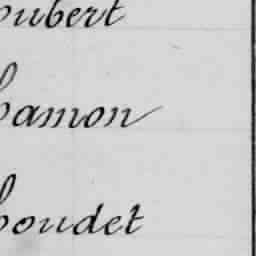 oubert
hamon
houdet